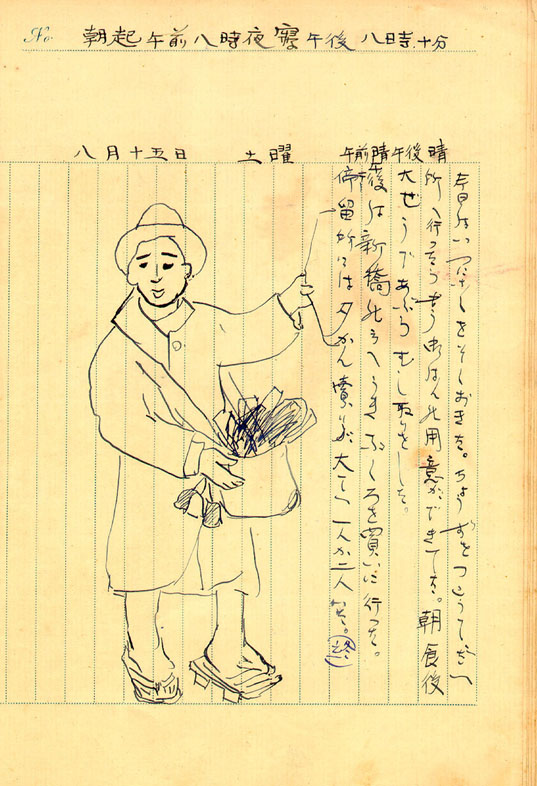 No.
朝起午前八時夜寝午後八時十分
八月十五日　土曜　午前晴午後晴
今日はいつ しをそしおきた。ちょうずをつこうてだ
所へ行ったらもう御はんの用意ができてた。朝食後
大ぜうであぶらむし取りをした。
午後は新橋の方へうきぶくろを買いに行った。
停留所には夕かん賣りが大てい一人か二人いた。
(終)